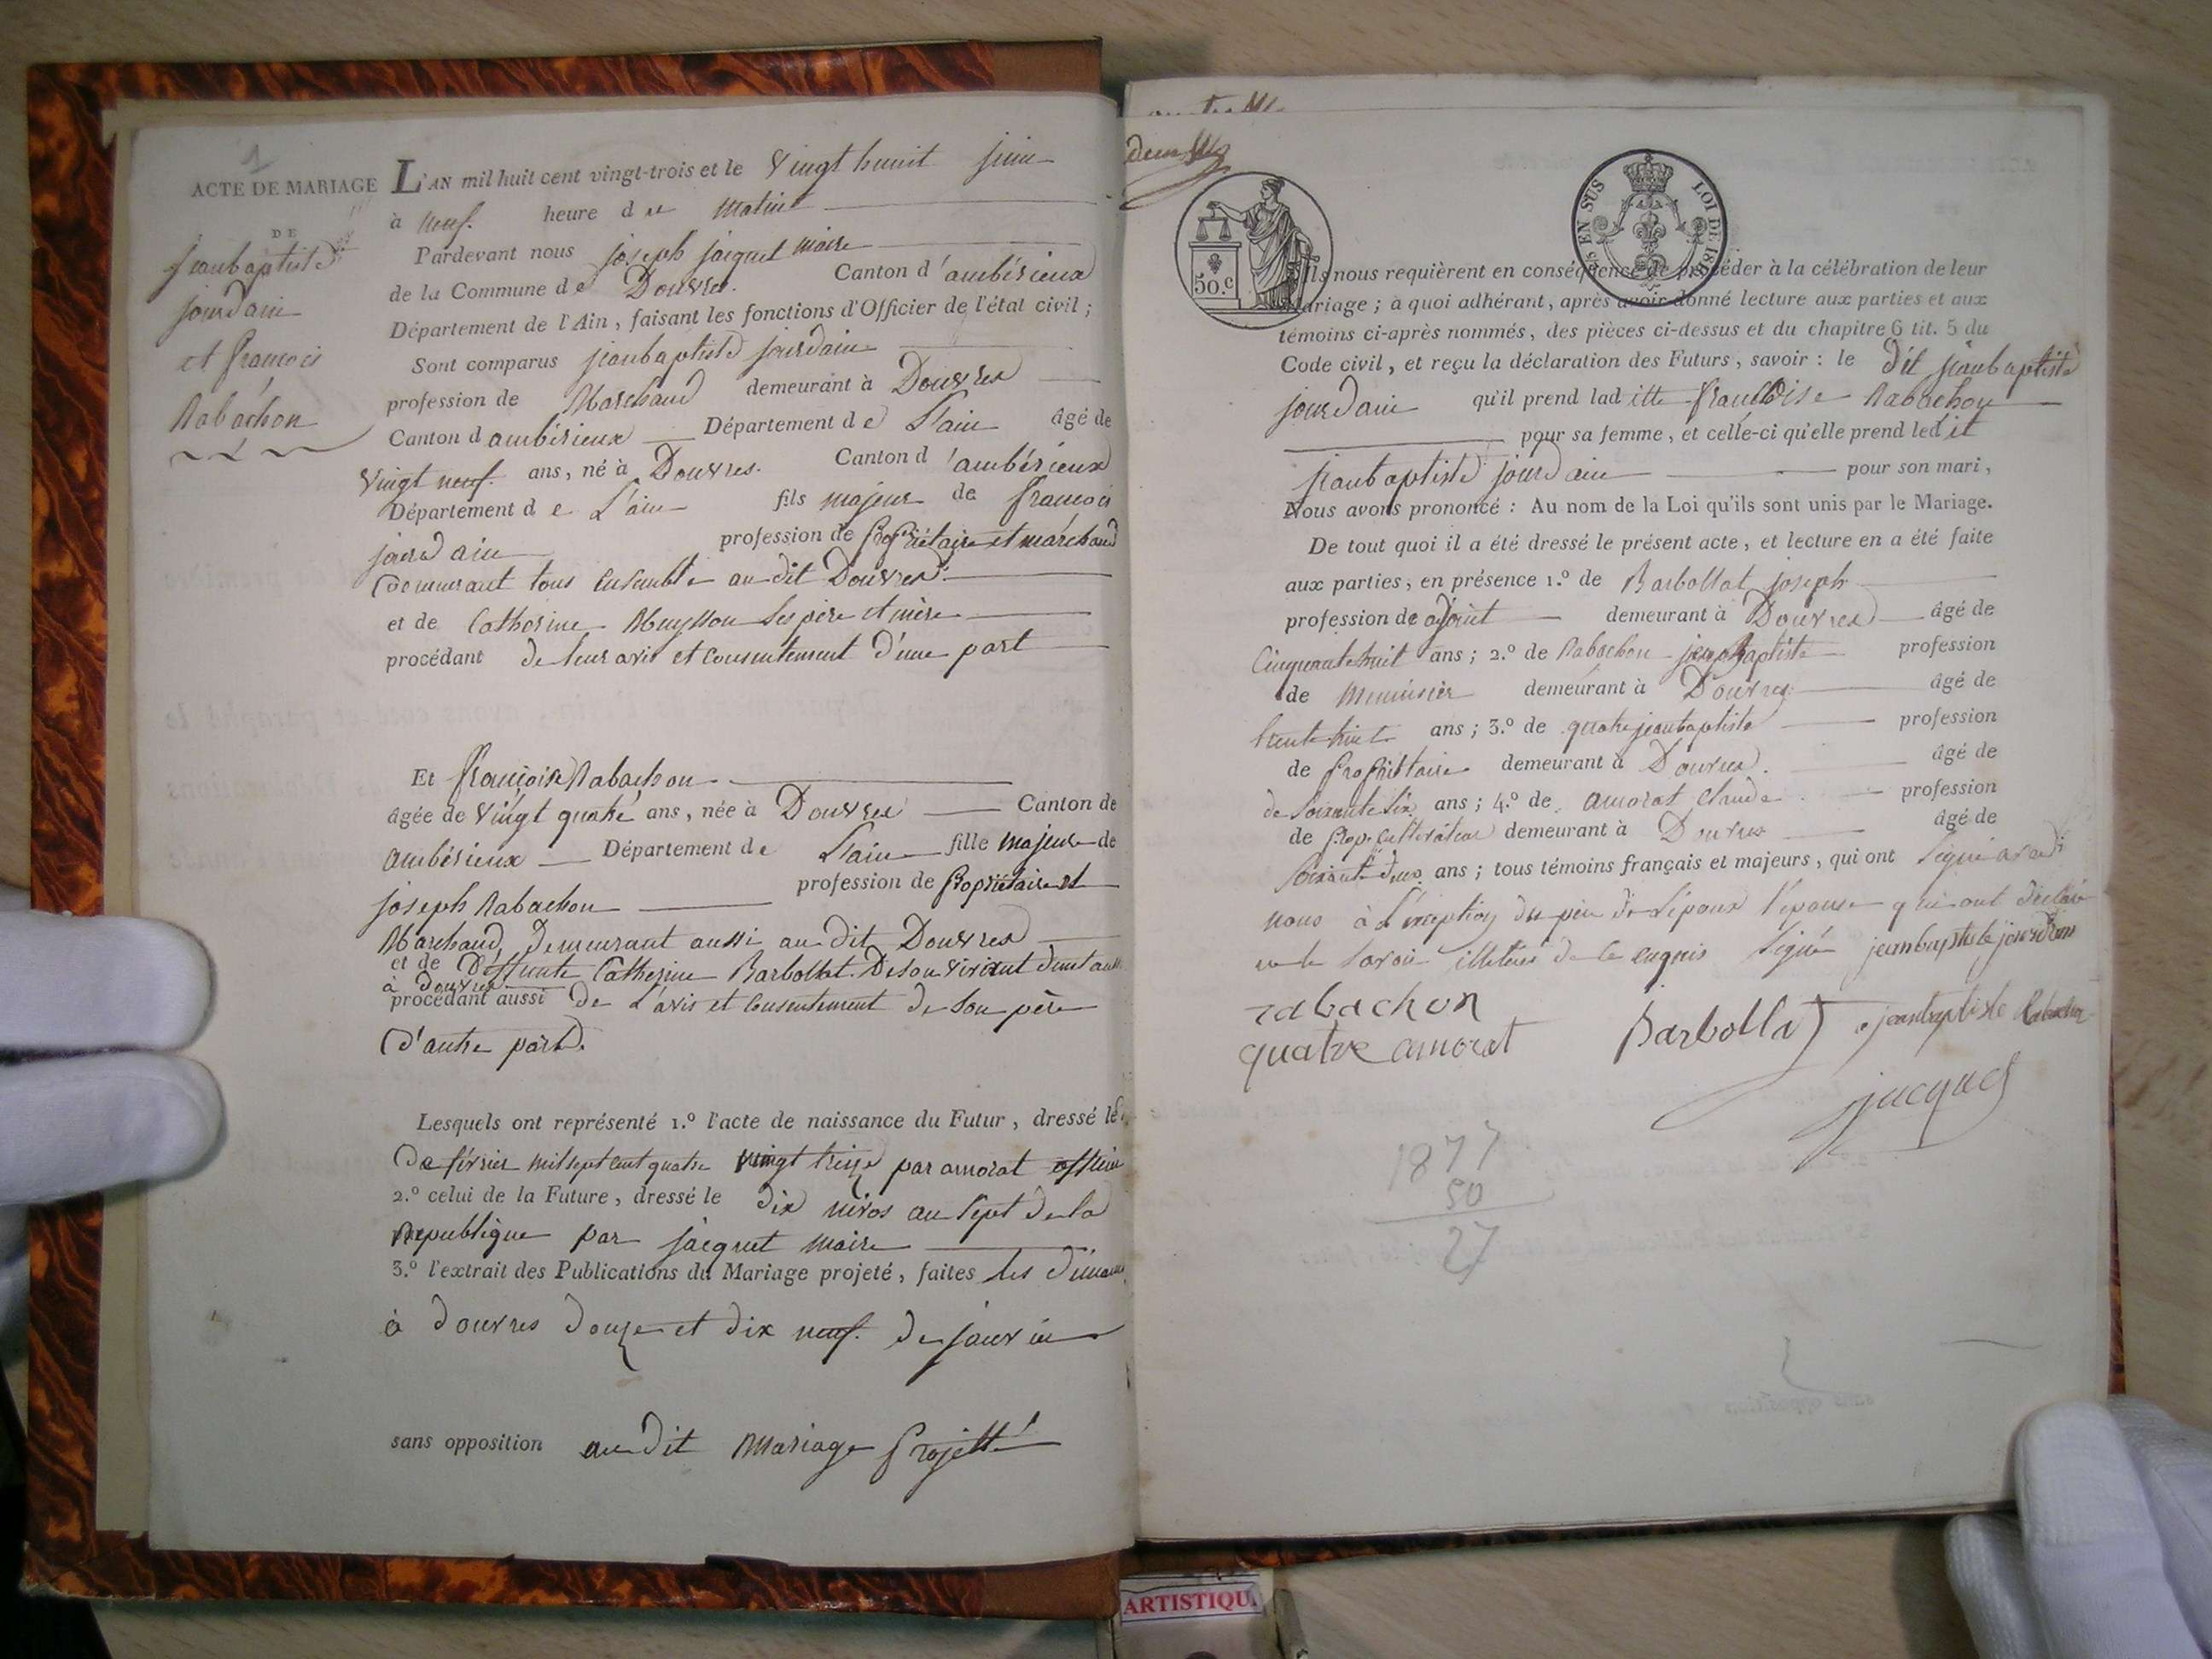 1
ACTE DE MARIAGE
DE
jeanbaptiste
jourdain
et francois
Rabachon
L'AN mil huit cent vingt-trois et le vingt huuit juin
à neuf. heure du matin
Pardevant nous joseph jacquet maire
de la Commune de Douvres. Canton d'ambérieux
Département de l'Ain, faisant les fonctions d'Officier de l'état civil ;
Sont comparus jeanbaptiste jourdain
profession de Marchand demeurant à Douvres
Canton d ambérieux Département de L'ain âgé de
vingt neuf. ans, né à Douvres. Canton d'ambérieux
Département de L'ain fils majeur de francois
jourdain profession de propriétaire et marchand
demeurant tous ensemble au dit Douvres
et de Catherine Meysson ses père et mère
procédant de leur avis et consentement d'une part
Et françoise Rabachon
âgée de vingt quatre ans, née à Douvres Canton de
ambérieux Département de L'ain fille majeure de
joseph Rabachon profession de propriétaire et
Marchand, demeurant aussi au dit Douvres
et de Deffunte Catherine Barbollat. De son vivant
à Douvres
procédant aussi de L'avis et consentement de son père
d'autre part.
Lesquels ont représenté 1.º l'acte de naissance du Futur, dressé le
de février mil sept cent quatre vingt treize par amorat officier
2.º celui de la Future, dressé le dix nivos an sept de la
Republique par jacquet maire
3.º l'extrait des Publications du Mariage projeté, faites les
à douvres douze et dix neuf. de janvier
sans opposition au dit mariage projetté
50.c
EN SUS
LOI DE
Ils nous requièrent en conséquence de procéder à la célébration de leur
Mariage ; à quoi adhérant, après avoir donné lecture aux parties et aux
témoins ci-après nommés, des pièces ci-dessus et du chapitre 6 tit. 5 du
Code civil, et reçu la déclaration des Futurs, savoir : le dit jeanbaptiste
jourdain qu'il prend laditte francoise Rabachon
pour sa femme, et celle-ci qu'elle prend ledit
jeanbaptiste jourdain pour son mari,
Nous avons prononcé : Au nom de la Loi qu'ils sont unis par le Mariage.
De tout quoi il a été dressé le présent acte, et lecture en a été faite
aux parties, en présence 1.º de Barbollat joseph
profession de ajoint demeurant à Douvres âgé de
Cinquante huit ans ; 2.º de Rabachon jean Baptiste profession
de menuisier demeurant à Douvres âgé de
trente huit ans ; 3.º de quatre jeanbaptiste profession
de propriétaire demeurant à Douvres. âgé de
de soixante six ans ; 4.º de amorat claude profession
de prop. cultivateur demeurant à Douvres âgé de
soixante deux ans ; tous témoins français et majeurs, qui ont signé avec
nous à L'exception du père de L'époux l'épouse qui ont déclaré
ne le savoir illeteres de ce enquis signé jeanbaptiste jourdain
rabachon
quatre amorat Barbollat jeanbaptiste Rabachon
jacquet
1877
50
27
ARTISTIQU